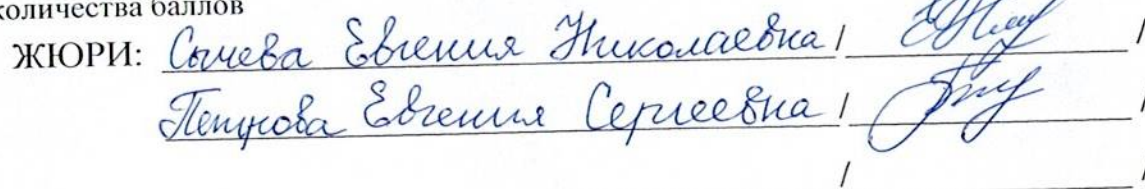 количества баллов
ЖЮРИ: Сычева Евгения Николаевна / /
Евгения Сергеевна / /
/ /